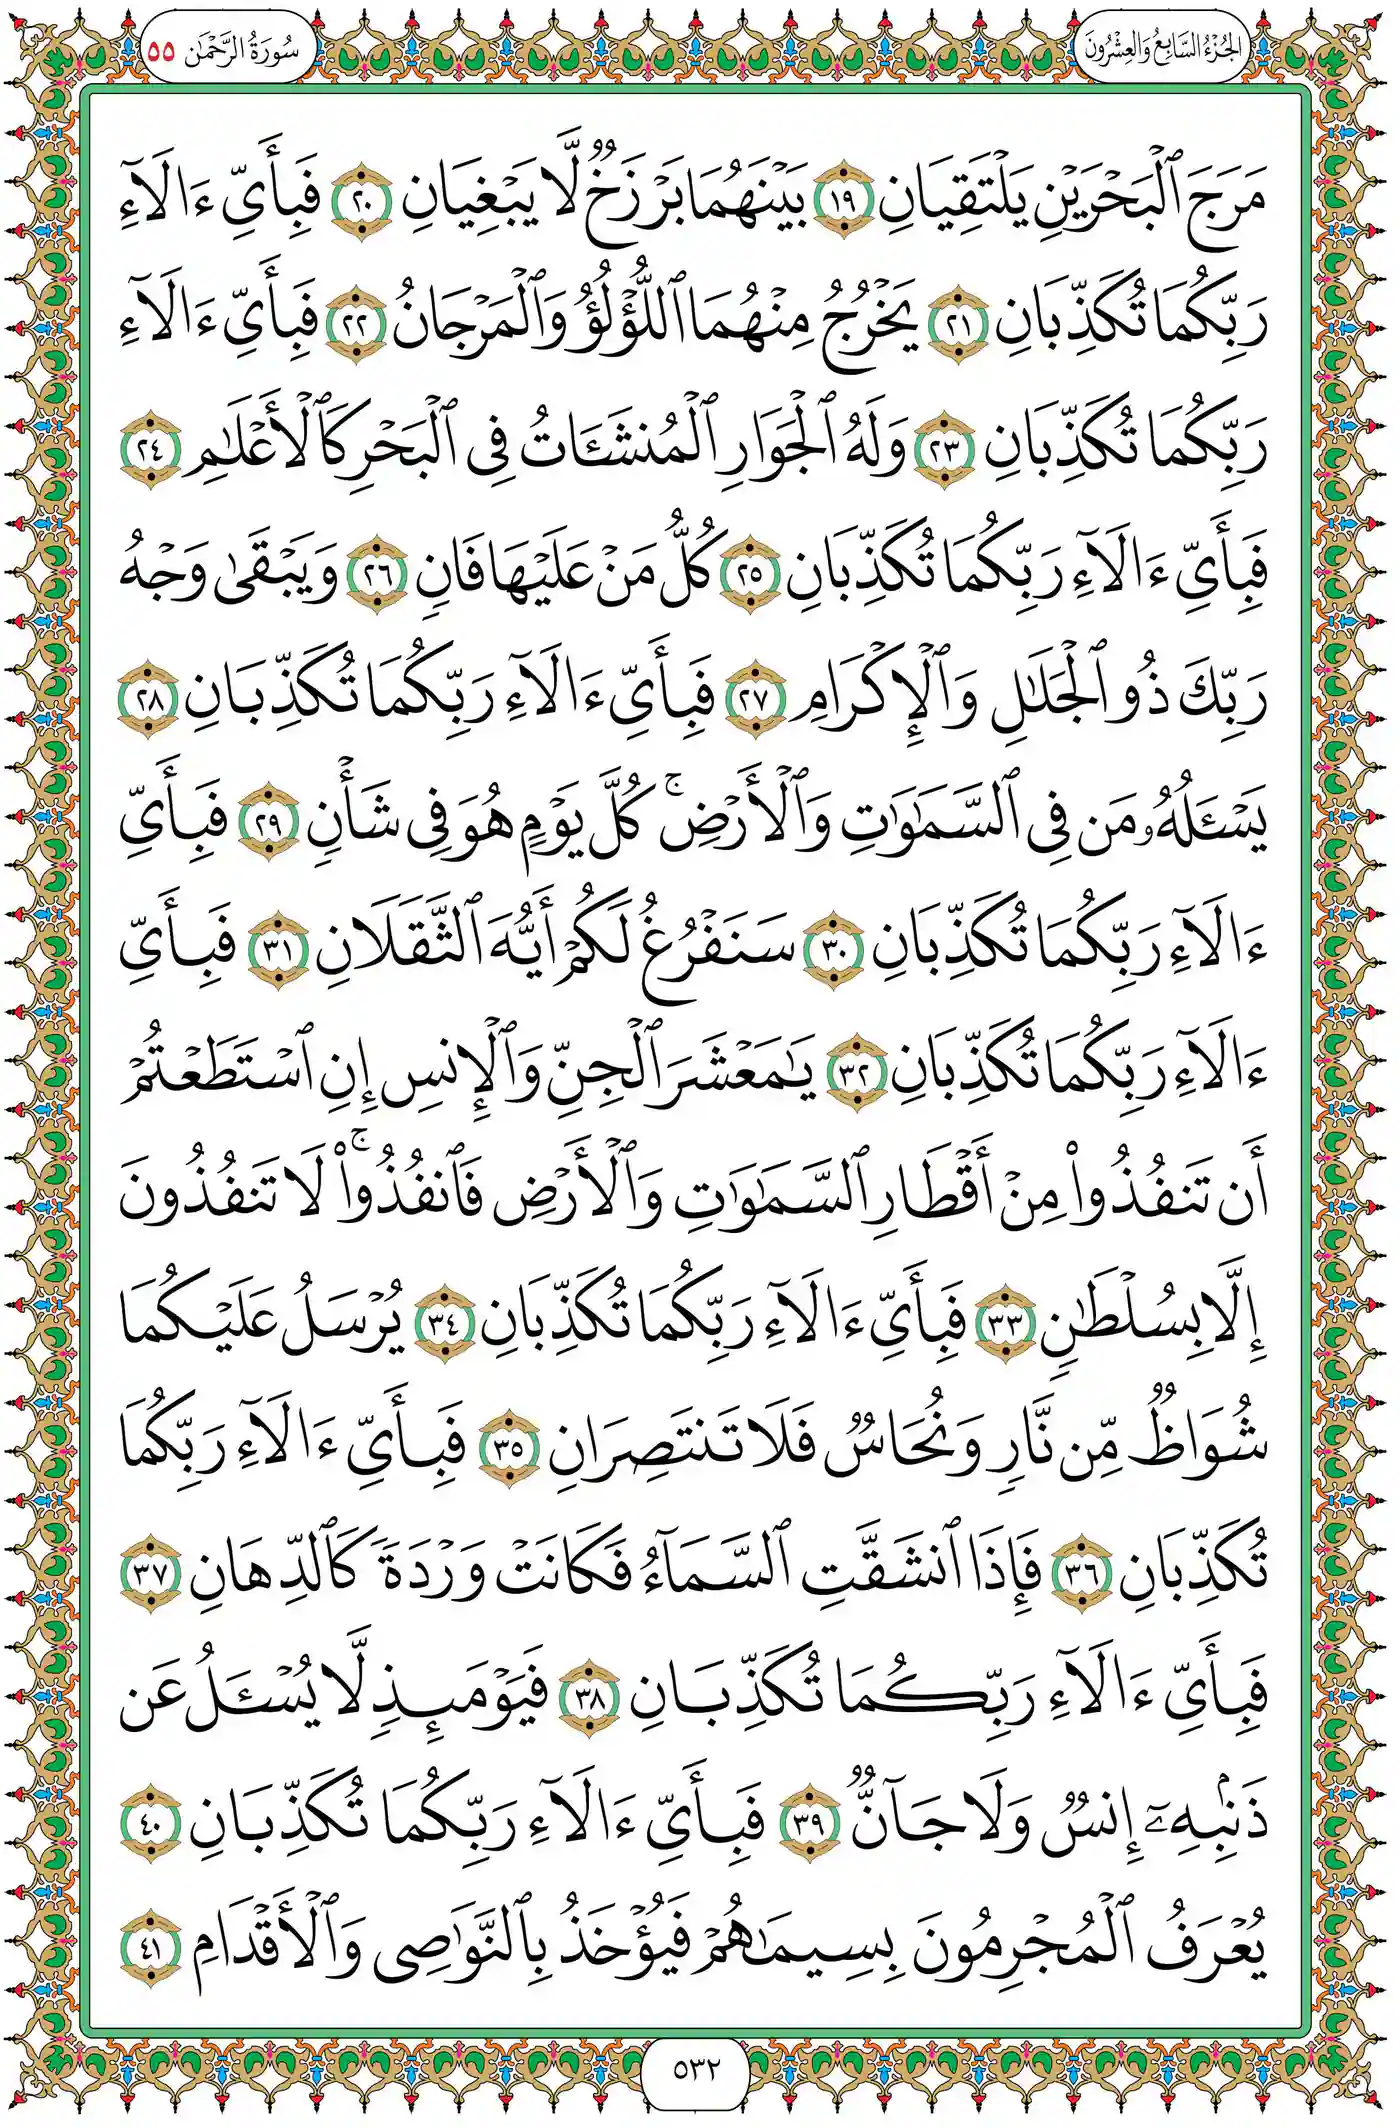 الجُزْءُ السَّابِعُ وَالعِشْرُونَ
سُورَةُ الرَّحْمَٰن ٥٥
مَرَجَ ٱلْبَحْرَيْنِ يَلْتَقِيَانِ ١٩ بَيْنَهُمَا بَرْزَخٌ لَّا يَبْغِيَانِ ٢٠ فَبِأَيِّ ءَالَآءِ
رَبِّكُمَا تُكَذِّبَانِ ٢١ يَخْرُجُ مِنْهُمَا ٱللُّؤْلُؤُ وَٱلْمَرْجَانُ ٢٢ فَبِأَيِّ ءَالَآءِ
رَبِّكُمَا تُكَذِّبَانِ ٢٣ وَلَهُ ٱلْجَوَارِ ٱلْمُنشَـَٔاتُ فِى ٱلْبَحْرِ كَٱلْأَعْلَٰمِ ٢٤
فَبِأَيِّ ءَالَآءِ رَبِّكُمَا تُكَذِّبَانِ ٢٥ كُلُّ مَنْ عَلَيْهَا فَانٍ ٢٦ وَيَبْقَىٰ وَجْهُ
رَبِّكَ ذُو ٱلْجَلَٰلِ وَٱلْإِكْرَامِ ٢٧ فَبِأَيِّ ءَالَآءِ رَبِّكُمَا تُكَذِّبَانِ ٢٨
يَسْـَٔلُهُۥ مَن فِى ٱلسَّمَٰوَٰتِ وَٱلْأَرْضِ ۚ كُلَّ يَوْمٍ هُوَ فِى شَأْنٍ ٢٩ فَبِأَيِّ
ءَالَآءِ رَبِّكُمَا تُكَذِّبَانِ ٣٠ سَنَفْرُغُ لَكُمْ أَيُّهَ ٱلثَّقَلَانِ ٣١ فَبِأَيِّ
ءَالَآءِ رَبِّكُمَا تُكَذِّبَانِ ٣٢ يَٰمَعْشَرَ ٱلْجِنِّ وَٱلْإِنسِ إِنِ ٱسْتَطَعْتُمْ
أَن تَنفُذُوا۟ مِنْ أَقْطَارِ ٱلسَّمَٰوَٰتِ وَٱلْأَرْضِ فَٱنفُذُوا۟ ۚ لَا تَنفُذُونَ
إِلَّا بِسُلْطَٰنٍ ٣٣ فَبِأَيِّ ءَالَآءِ رَبِّكُمَا تُكَذِّبَانِ ٣٤ يُرْسَلُ عَلَيْكُمَا
شُوَاظٌ مِّن نَّارٍ وَنُحَاسٌ فَلَا تَنتَصِرَانِ ٣٥ فَبِأَيِّ ءَالَآءِ رَبِّكُمَا
تُكَذِّبَانِ ٣٦ فَإِذَا ٱنشَقَّتِ ٱلسَّمَآءُ فَكَانَتْ وَرْدَةً كَٱلدِّهَانِ ٣٧
فَبِأَيِّ ءَالَآءِ رَبِّكُمَا تُكَذِّبَانِ ٣٨ فَيَوْمَئِذٍ لَّا يُسْـَٔلُ عَن
ذَنۢبِهِۦٓ إِنسٌ وَلَا جَآنٌّ ٣٩ فَبِأَيِّ ءَالَآءِ رَبِّكُمَا تُكَذِّبَانِ ٤٠
يُعْرَفُ ٱلْمُجْرِمُونَ بِسِيمَٰهُمْ فَيُؤْخَذُ بِٱلنَّوَٰصِى وَٱلْأَقْدَامِ ٤١
٥٣٢